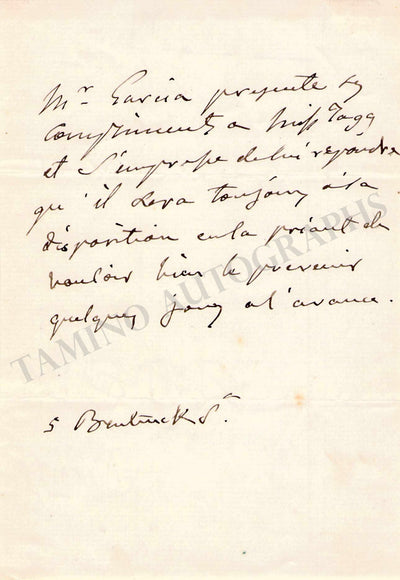 Mr Garcia presente ses
compliments a Miss Tagg
et s'empresse de lui répondre
qu'il sera toujours à sa
disposition en la priant de
vouloir bien le prevenir
quelques jours a l'avance.
5 Bentinck St.
TAMINO AUTOGRAPHS